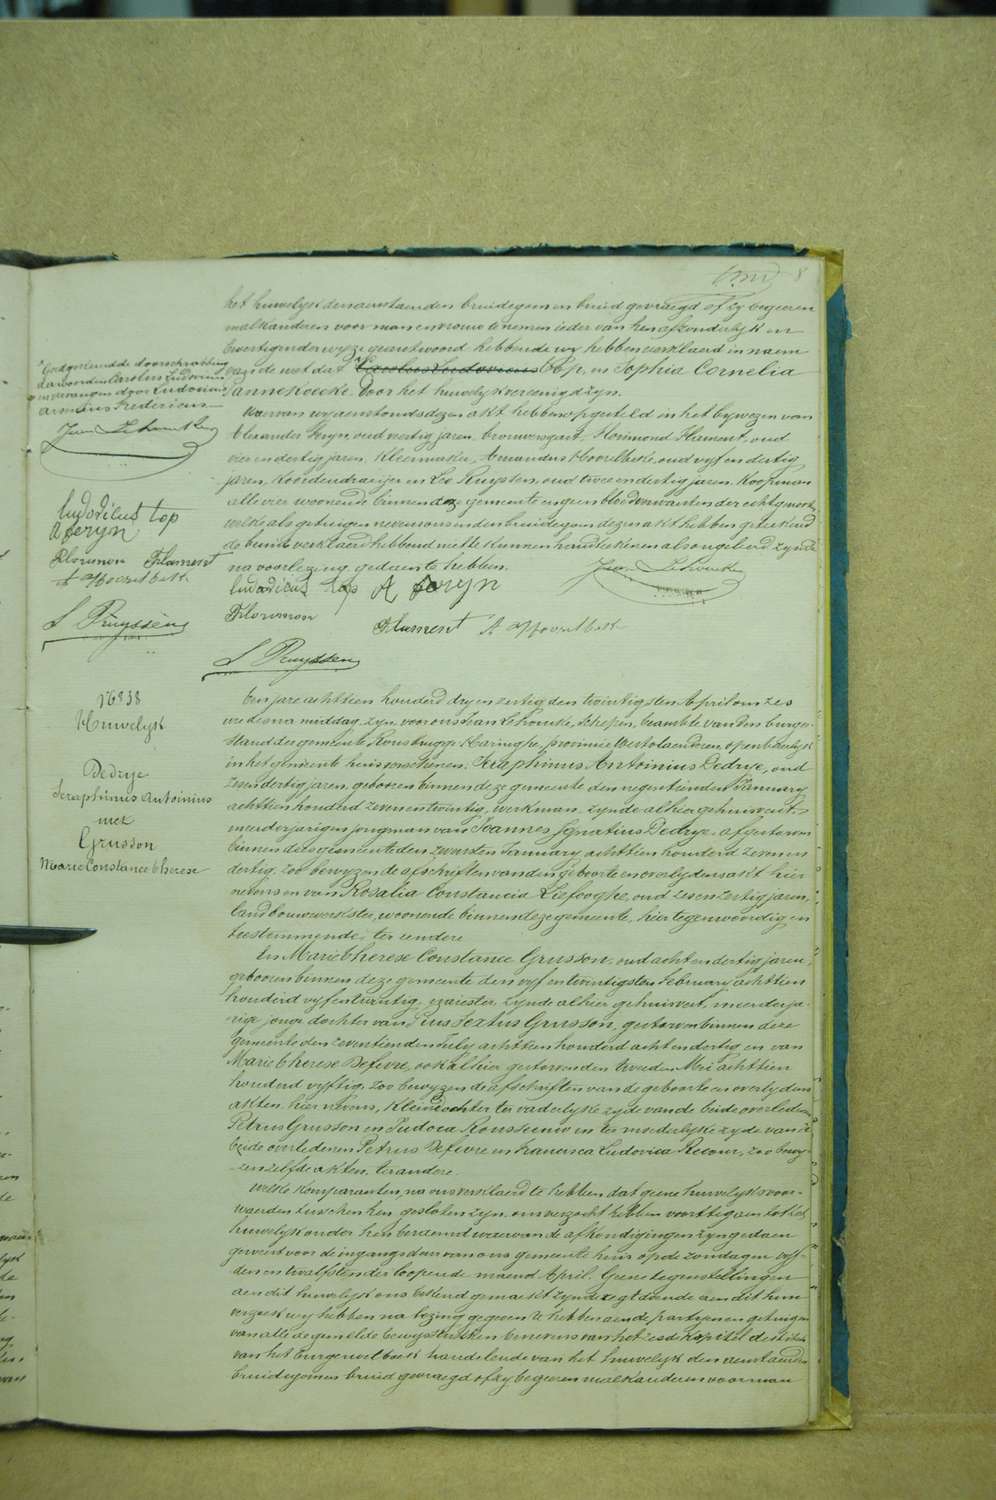 8
het huwelyk den aenstaenden bruidegom en bruid gevraegd of zy begeeren
malkanderen voor man en vrouw te nemen ieder van hen afzonderlyk en
bevestigender wyze geantwoord hebbende wy hebben verklaerd in naem
van de wet dat Carolus Ludovicus Top, en Sophia Cornelia
Pannekoeke door het huwelyk vereenigd zyn.
Waervan wy aenstonds dezen akt hebben opgesteld in het bywezen van
Feryn, oud veertig jaren, brouwersgast, Florimond Flament, oud
vier en dertig jaren, kleermaker, Amandus Hoorelbeke, oud vyf en dertig
jaren, koordendraeijer en Leo Ruyssen, oud twee en dertig jaren, koopman
alle vier woonende binnen deze gemeente en geen bloedverwanten der echtgenooten
welke als getuigen nevens ons en den bruidegom dezen akt hebben geteekend
de bruid verklaerd hebbende niet te kunnen handteekenen als ongeleerd zynde
na voorlezing gedaen te hebben.
Ludovicus top A feryn
Florimon
Flament A Hoorelbeke
L Ruyssen
Goedgekeurde doorschrabbing
der woorden Carolus Ludovicus
en vervangen door Ludovicus
Armelius Fredericus
Ludovicus top
A feryn
Florimon Flament
A Hoorelbeke
L Ruyssen
N 8
Huwelyk
Dedrye
Seraphinus Antoinius
met
Grusson
Marie Constance Therese
Ten jare achttien honderd dry en zestig den twintigsten April om zes
ure des na middag, zyn, voor ons Schepen, beambte van den burger-
stand der gemeente Rousbrugge-Haringhe, provincie Westvlaenderen, openbaerlyk
in het gemeente huis verschenen, Seraphinus Antoinius Dedrye, oud
zes en dertig jaren, geboren binnen deze gemeente den negentienden January
achttien honderd zeven en twintig, werkman, zynde alhier gehuisvest,
meerderjarigen jongman van Joannes Ignatius Dedrye, afgestorven
binnen deze gemeente den zwarsten January achttien honderd zeven en
dertig, zoo bewyzen de afschriften van den geboorte en overlydens akt hier
nevens en van Rosalia Constancia Liefooghe, oud zes en zestig jaren,
landbouwwerkster, woonende binnen deze gemeente, hier tegenwoordig en
toestemmende; ter eendere
En Marie Therese Constance Grusson, oud acht en dertig jaren,
geboren binnen deze gemeente den vyf en twintigsten February achttien
honderd vyf en twintig, naeister, zynde alhier gehuisvest, meerderja-
rige jonge dochter van Pius Sextus Grusson, gestorven binnen deze
gemeente den zeventienden July achttien honderd acht en dertig en van
Marie Therese Defevre, ook alhier gestorven den tweeden Mei achttien
honderd vyftig, zoo bewyzen de afschriften van de geboorte en overlydens
akten, hier nevens, kleindochter ter vaderlyke zyde van de beide overledenen
Petrus Grusson en Judoca Rousseeuw en ter moederlyke zyde van de
beide overledenen Petrus Defevre en Francisca Ludovica Recour, zoo bewy-
zen zelfde akten, ter andere.
Welke komparanten, na ons verklaerd te hebben dat geene huwelyks voor-
waerden tusschen hen gesloten zyn, ons verzocht hebben voorttegaen tot het
huwelyk onder hen beraemd waervan de afkondigingen zyn gedaen
geweest voor de ingangdeur van ons gemeente huis op de zondagen vyf-
den en twalfsten der loopende maend April. Geene tegenstellingen
aen dit huwelyk ons bekend gemaekt zynde regt doende aen dit hun
verzoek wy hebben na lezing gegeven te hebben aen de partyen en getuigen
van alle de gemelde bewysstukken benevens van het zesde kapittel des titels
van het burgerwetboek handelende van het huwelyk den aenstaenden
bruidegom en bruid gevraegd of zy begeeren malkanderen voor man